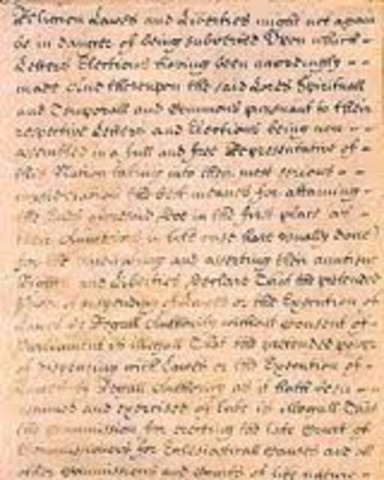 Religion Lawes and Liberties might not again
be in danger of being subverted Upon which
Letters Elections having been accordingly
made And thereupon the said Lords Spirituall
and Temporall and Commons pursuant to their
respective Letters and Elections being now
assembled in a full and free Representative of
this Nation takeing into their most serious
consideration the best meanes for attaining
the Ends aforesaid Doe in the first place as
their Auncestors in like case have usually done
for the vindicating and asserting their auntient
Rights and Liberties Declare That the pretended
Power of suspending of Lawes or the Execution of
Lawes by Regall Authority without Consent of
Parliament is illegall That the pretended power
of dispensing with Lawes or the Execution of
Lawes by Regall Authority as it hath been
assumed and exercised of late is illegall That
the Commission for erecting the late Court of
Commissioners for Ecclesiasticall Causes and all
other Commissions and Courts of like nature